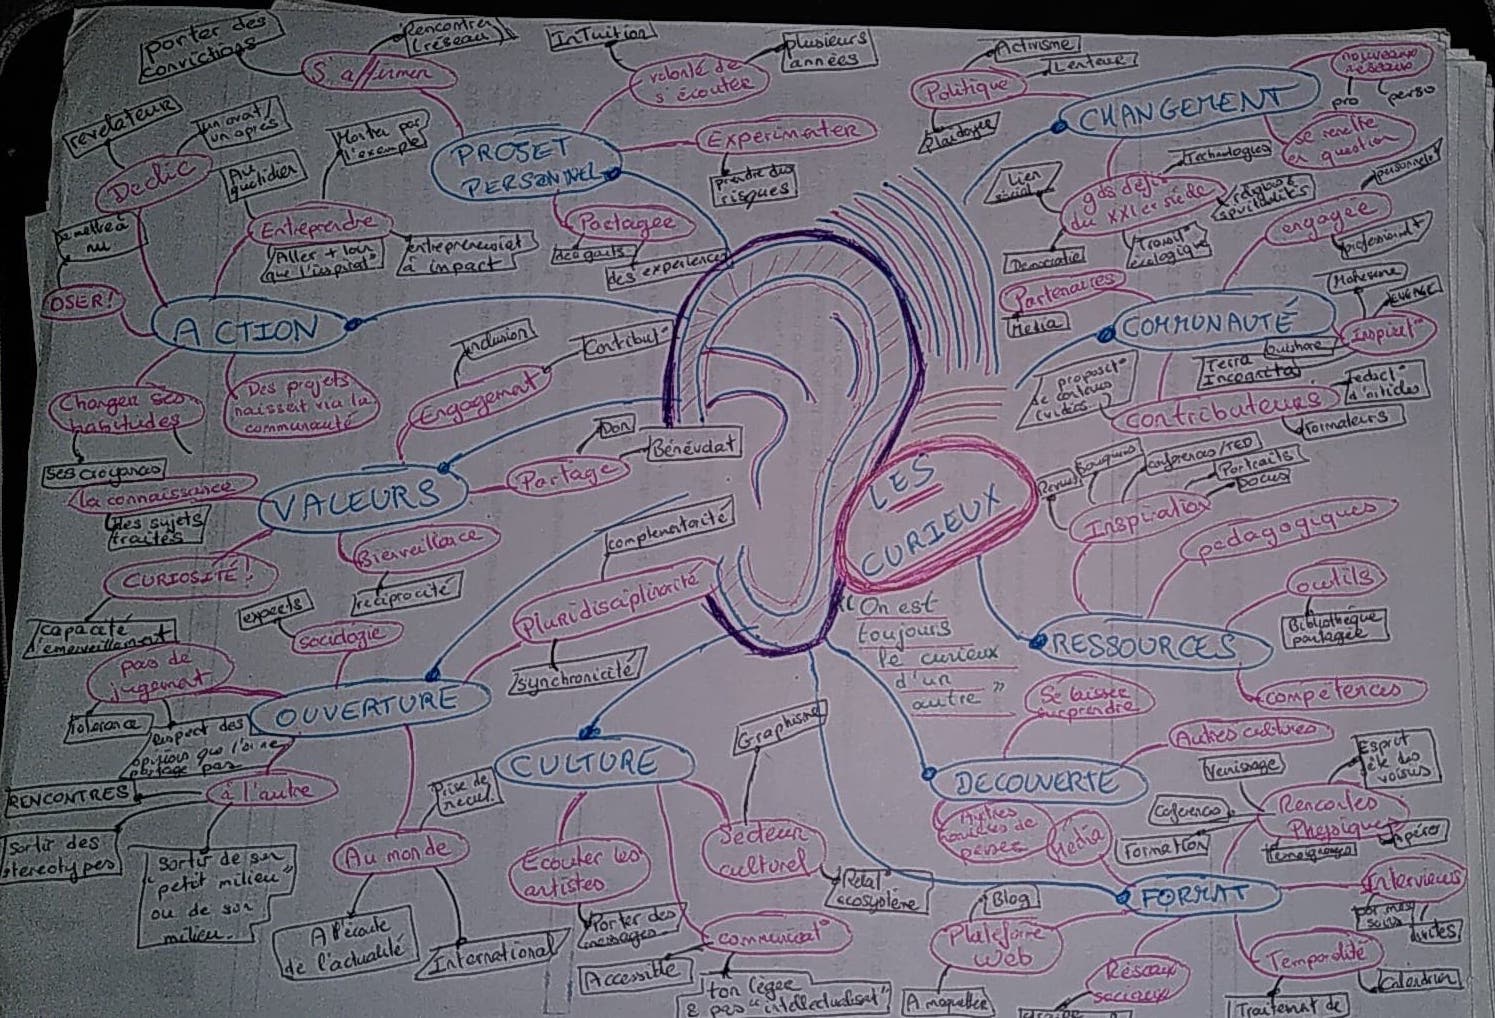 LES
CURIEUX
"On est
toujours
le curieux
d'un
autre"
PROJET
PERSONNEL
S'affirmer
porter des
convictions
Rencontrer
(réseau)
volonté de
s'écouter
InTuition
plusieurs
années
Expérimenter
prendre des
risques
Partager
des expériences
ACTION
Déclic
révélateur
un avant/
un après
Entreprendre
Au
quotidien
Montrer par
l'exemple
Aller + loin
que l'inspirat°
entrepreneuriat
à impact
OSER!
se mettre à
nu
Changer ses
habitudes
ses croyances
Des projets
naissent via la
communauté
VALEURS
Engagement
Inclusion
Contribut°
Partage
Don
Bénévolat
la connaissance
des sujets
traités
Bienveillance
réciprocité
CURIOSITÉ!
capacité
émerveillement
OUVERTURE
sociologie
experts
Pluridisciplinarité
complémentarité
synchronicité
pas de
jugement
Tolérance
Respect des
opinions que l'on ne
partage pas
à l'autre
RENCONTRES
sortir des
stéréotypes
"sortir de son
petit milieu"
ou de son
milieu.
Au monde
Prise de
recul.
A l'écoute
de l'actualité
International
CULTURE
Écouter les
artistes
Porter des
messages
Secteur
culturel
Graphisme
Relat°
écosystème
communicat°
Accessible
ton léger
& pas "intellectualisat°"
CHANGEMENT
Politique
Activisme
Lenteur
Plaidoyer
nouveaux
réseaux
pro
perso
se remettre
en question
gds défis
du XXIe siècle
Lien
social
Technologies
religions &
spiritualités
Démocratie
Transit°
écologique
COMMUNAUTÉ
Partenaires
Média
engagée
personnel+
professionnel+
Inspirat°
Makesense
ENGAGE
Ouishare
Terra
Incognita
contributeurs
proposit°
de contenus
(vidéos...)
rédact°
d'articles
formateurs
RESSOURCES
Inspiration
Revues
Bouquins
conférences/TED
Portraits
DOCUS
pédagogiques
outils
Bibliothèque
partagée
compétences
DECOUVERTE
Se laisser
surprendre
Autres cultures
Autres
manières de
penser
FORMAT
Média
Rencontres
Physiques
Vernissage
Conférence
Formation
Témoignages
Apéro
Esprit
fête des
voisins
Interviews
Temporalité
Calendrier
Traitement de
Plateforme
web
Blog
A maquetter
Réseaux
sociaux